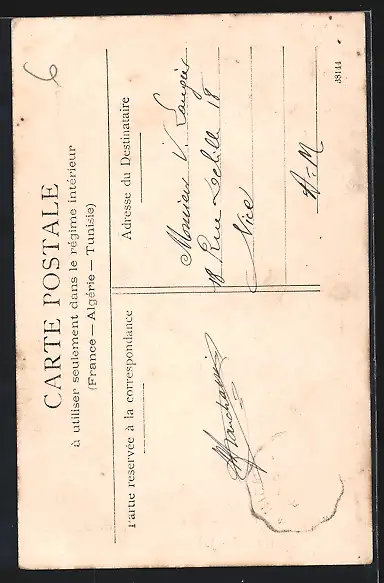 CARTE POSTALE
à utiliser seulement dans le régime intérieur
(France — Algérie — Tunisie)
Partie reservée à la correspondance
Adresse du Destinataire
Monsieur V. Laugier
18 Rue 18
Nice
A-M
38144
6